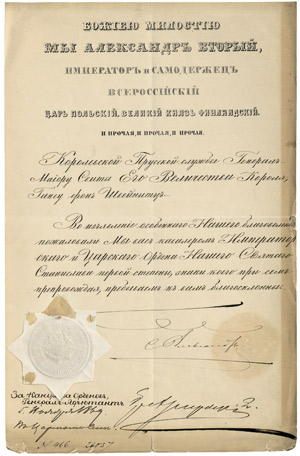 БОЖІЕЮ МИЛОСТІЮ
МЫ АЛЕКСАНДРЪ ВТОРЫЙ,
ИМПЕРАТОРЪ и САМОДЕРЖЕЦЪ
ВСЕРОССІЙСКІЙ
ЦАРЬ ПОЛЬСКІЙ, ВЕЛИКІЙ КНЯЗЬ ФИНЛЯНДСКІЙ.
И ПРОЧАЯ, И ПРОЧАЯ, И ПРОЧАЯ.
Королевской Прусской службы Генералъ
Маіору Свиты Его Величества Короля,
фонъ Швейницъ.
Во изъявленіе особеннаго Нашего благоволенія
пожаловали Мы васъ кавалеромъ Император
скаго и Царскаго Ордена Нашего Святаго
Станислава первой степени, знаки коего при семъ
препровождая, пребываемъ къ вамъ благосклонны.
За Канцлера Орденовъ,
Генералъ-Адъютантъ
5 Ноября 1869
№